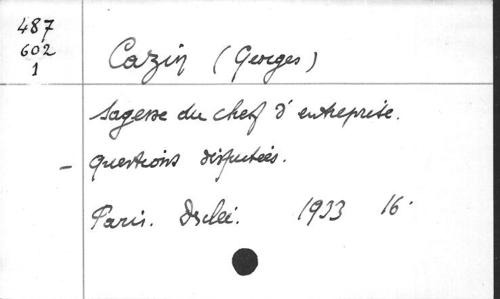 487
602
1
Cazin (Georges)
Sagesse du chef d'entreprise.
– Questions disputées.
Paris. Dsclée. 1933 16°